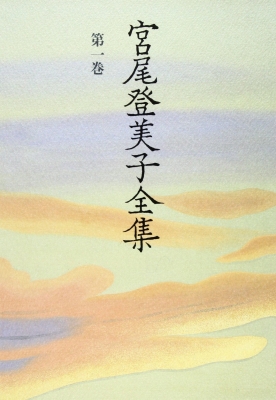 宮尾登美子全集
第一巻